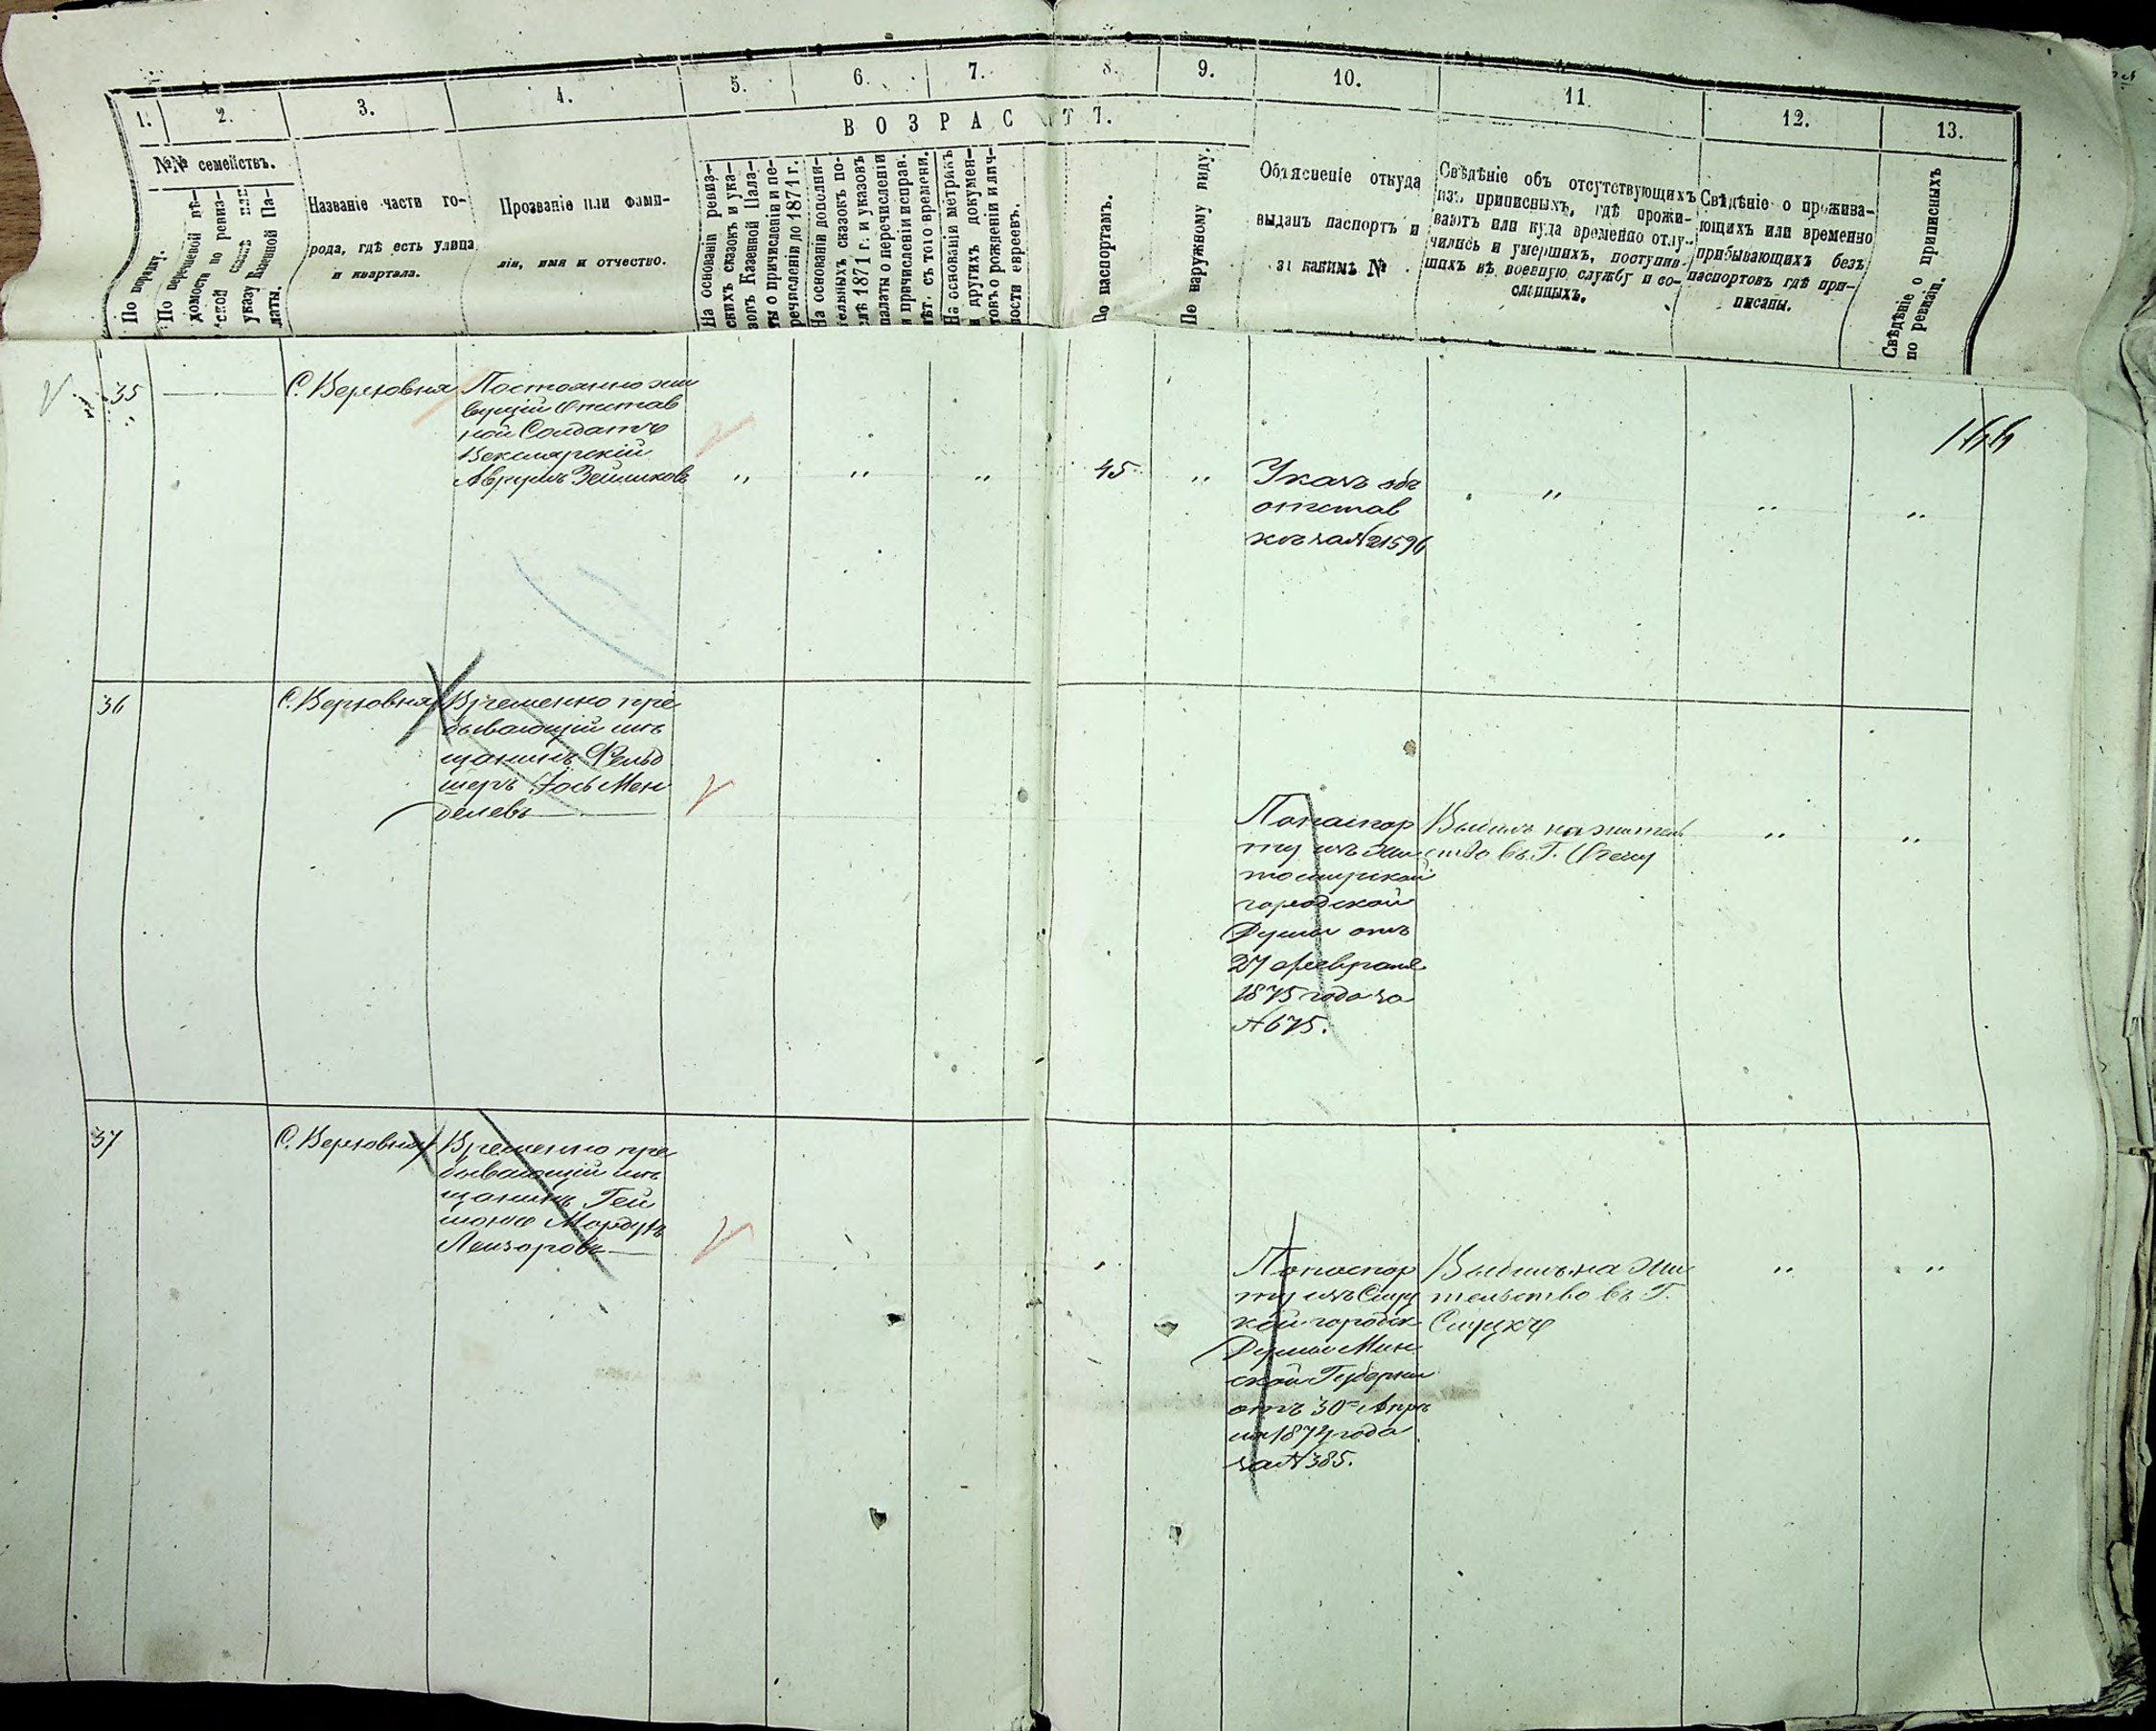 1.
2.
3.
4.
5.
6.
7.
8.
9.
10.
11.
12.
13.
ВОЗРАСТЪ.
№№ семействъ.
По порядку.
По перечневой вѣ-
домости по ревиз-
ской сказкѣ или
указу Казенной Па-
латы.
Названіе части го-
рода, гдѣ есть улица
и квартала.
Прозваніе или фами-
лія, имя и отчество.
На основаніи ревиз-
скихъ сказокъ и ука-
зовъ Казенной Пала-
ты о причисленіи и пе-
речисленіи до 1871 г.
На основаніи дополни-
тельныхъ сказокъ по-
слѣ 1871 г. и указовъ
палаты о перечисленіи
и причисленіи исправ.
лѣт. съ того времени.
На основаніи метрикъ
и другихъ докумен-
товъ о рожденіи и лич-
ности евреевъ.
По паспортамъ.
По наружному виду.
Объясненіе откуда
выданъ паспортъ и
за какимъ №
Свѣдѣніе объ отсутствующихъ
изъ приписныхъ, гдѣ прожи-
ваютъ или куда временно отлу-
чились и умершихъ, поступив-
шихъ въ военную службу и со-
сланныхъ.
Свѣдѣніе о прожива-
ющихъ или временно
прибывающихъ безъ
паспортовъ гдѣ при-
писаны.
Свѣдѣніе о приписныхъ
по ревизіи.
166
35
С. Верховня
Постоянно жи
вущій Отстав
ной Солдатъ
Векслярскій
Аврумъ Зейликовъ
45
Указъ объ
отстав
къ за №21596
36
С. Верховня
Временно пре
бывающій мѣ
щанинъ Фельд
шеръ Іось Мен
делевъ
По паспор
ту изъ Жи
томирской
городской
Думы отъ
27 февраля
1875 года за
№675.
Выбылъ на житель
ство въ Г.
37
С. Верховня
Временно пре
бывающій мѣ
щанинъ Гей
Мордухъ
Лейзоровъ
По паспор
ту изъ Слуц
кой городск
Думы Мин
ской Губерніи
отъ 30го Апрѣ
ля 1874 года
за №385.
Выбылъ на жи
тельство въ Г.
Слуцкъ